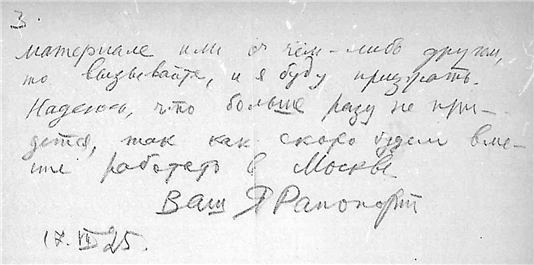 3.
материале или о чем-либо другом,
то вызывайте, и я буду приезжать.
Надеюсь, что больше разу не при-
дется, так как скоро будем вме-
сте работать в Москве
Ваш Я Рапопорт
17. VII 25.